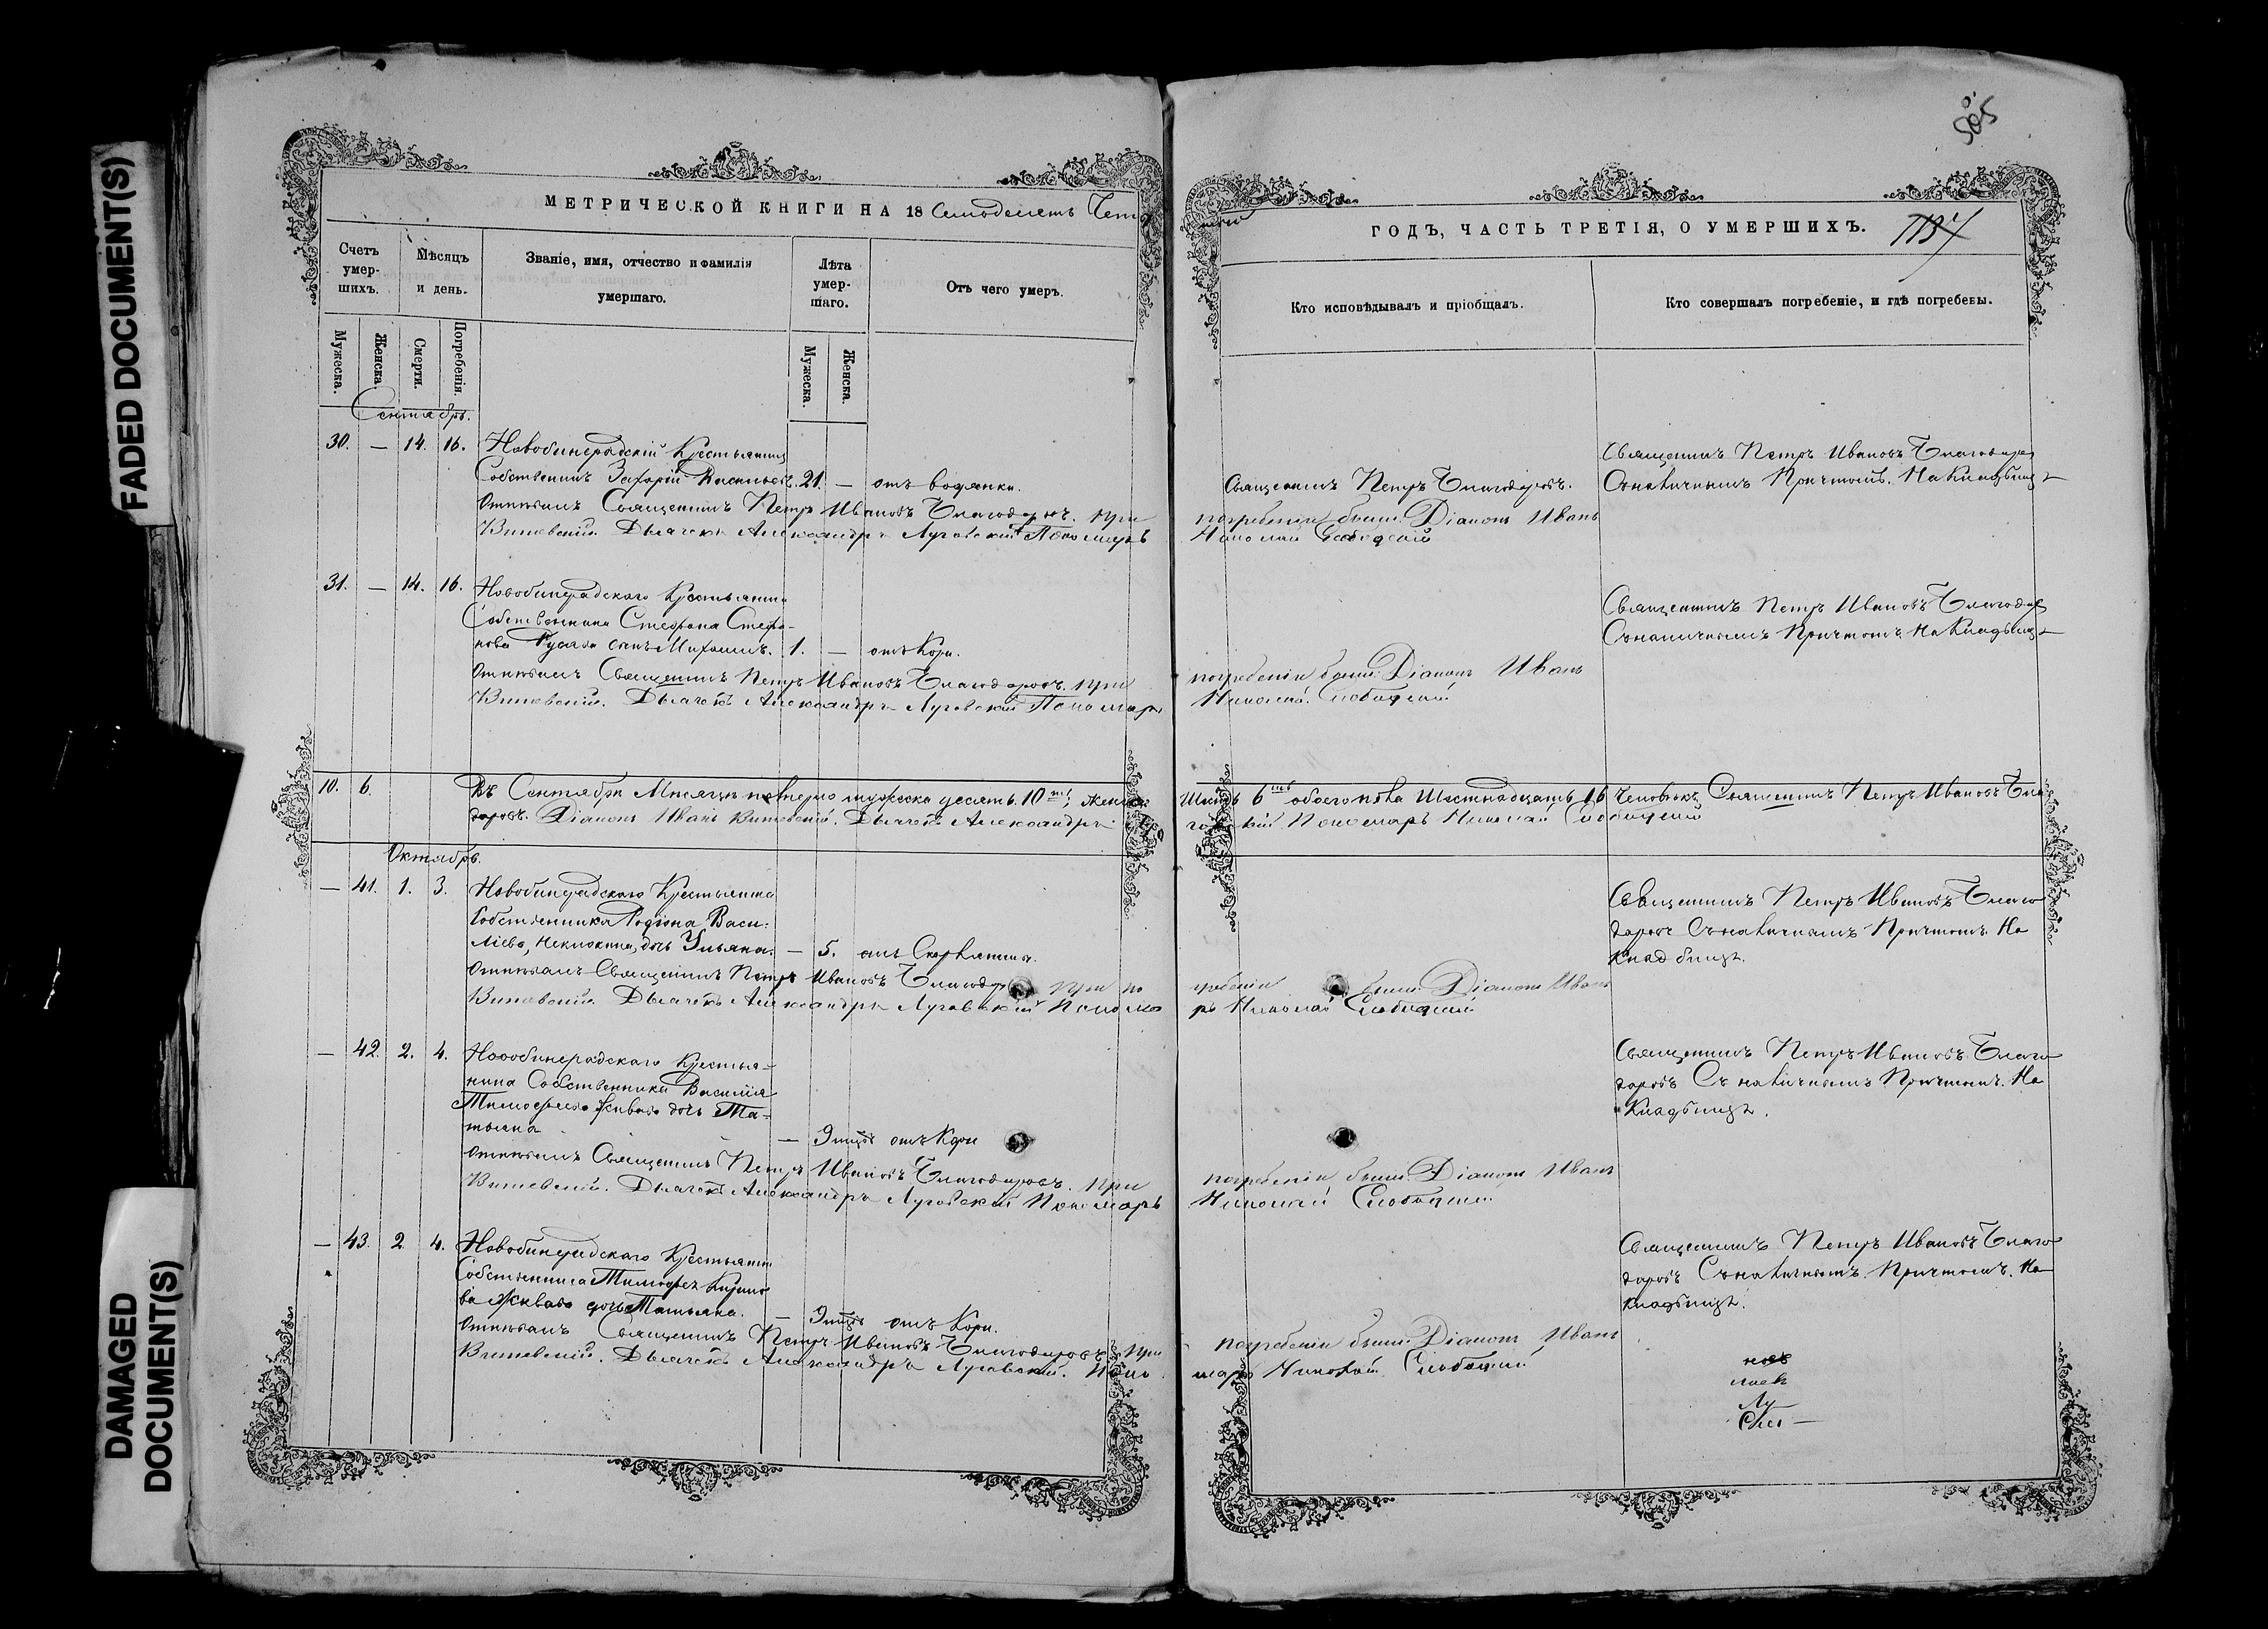 FADED DOCUMENT(S)
DAMAGED
DOCUMENT(S)
505
МЕТРИЧЕСКОЙ КНИГИ НА 18 Семьдесятъ Четвер
Счетъ умер-шихъ.
Мѣсяцъ и день.
Званіе, имя, отчество и фамилія умершаго.
Лѣта умер-шаго.
Отъ чего умеръ.
Мужеска.
Женска.
Смерти.
Погребенія.
Мужеска.
Женска.
Сентябрь.
30. — 14. 16. Новобинградскій Крестьянинъ
Собственникъ Захарій Васильевъ. 21. — отъ водянки.
Отпѣвалъ Священникъ Петръ Ивановъ Благодаровъ. при
Витевскій. Дьячекъ Александръ Луговскій Пономарь
31. — 14. 16. Новобинградскаго Крестьянина
Собственника Стефана Стефа-
нова сынъ Михаилъ. 1. — отъ Кори.
Отпѣвалъ Священникъ Петръ Ивановъ Благодаровъ. при
Витевскій. Дьячекъ Александръ Луговскій Пономарь
10. 6. Въ Сентябрѣ Мѣсяцѣ померло мужеска десять 10ть, женска
даровъ. Діаконъ Иванъ Витевскій. Дьячекъ Александръ
Октябрь.
— 41. 1. 3. Новобинградскаго Крестьянина
Собственника Родіона Васи-
ліева, дочь Ульяна. — 5. отъ Скарлатины.
Отпѣвалъ Священникъ Петръ Ивановъ при по
Витевскій. Дьячекъ Александръ Луговскій Понома
— 42. 2. 4. Новобинградскаго Крестья-
нина Собственника Василія
Тимофеева дочь Та-
тьяна — отъ Кори
Отпѣвалъ Священникъ Петръ Ивановъ Благодаровъ. при
Витевскій. Дьячекъ Александръ Луговскій Пономарь
— 43. 2 4. Новобинградскаго Крестьянина
Собственника Тимофея
дочь Татьяна. — отъ Кори.
Отпѣвалъ Священникъ Петръ Ивановъ Благодаровъ при
Витевскій. Дьячекъ Александръ Луговскій. Поно
ГОДЪ, ЧАСТЬ ТРЕТІЯ, О УМЕРШИХЪ.
Кто исповѣдывалъ и пріобщалъ.
Кто совершалъ погребеніе, и гдѣ погребены.
Священникъ Петръ Ивановъ Благодаров
Священникъ Петръ Благодаровъ.
Съ наличнымъ Причтомъ. На Кладбищѣ
погребеніи были. Діаконъ Иванъ
Николай Слободскій
Священникъ Петръ Ивановъ Благодар
Съ наличнымъ Причтомъ. На Кладбищѣ
погребеніи были. Діаконъ Иванъ
Николай Слободскій
Шесть 6ть обоего пола Шестнадцать 16 человѣкъ Священникъ Петръ Ивановъ Бла
говскій. Пономарь Николай Слободскій
Священникъ Петръ Ивановъ Благо
даровъ Съ наличнымъ Причтомъ. На
Кладбищѣ.
гребеніи были. Діаконъ Иванъ
рь Николай Слободскій
Священникъ Петръ Ивановъ Благо
даровъ Съ наличнымъ Причтомъ. На
Кладбищѣ.
погребеніи были. Діаконъ Иванъ
Николай Слободскій
Священникъ Петръ Ивановъ Благо
даровъ Съ наличнымъ Причтомъ. На
Кладбищѣ.
погребеніи были. Діаконъ Иванъ
марь Николай Слободскій